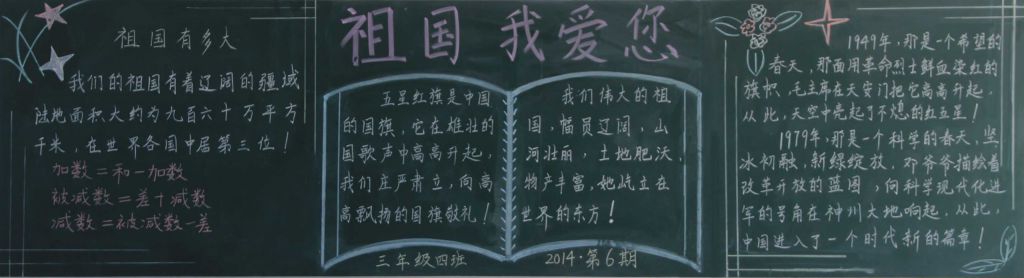 祖国有多大
我们的祖国有着辽阔的疆域
陆地面积大约为九百六十万平方
千米，在世界各国中居第三位！
加数=和-加数
被减数=差+减数
减数=被减数-差
祖国 我爱您
五星红旗是中国
的国旗，它在雄壮的
国歌声中高高升起，
我们庄严肃立，向高
高飘扬的国旗敬礼！
三年级四班
我们伟大的祖
国，幅员辽阔，山
河壮丽，土地肥沃，
物产丰富，她屹立在
世界的东方！
2014·第6期
1949年，那是一个希望的
春天，那面用革命烈士鲜血染红的
旗帜，毛主席在天安门把它高高升起，
从此，天空中亮起了不熄的红五星！
1979年，那是一个科学的春天，坚
冰初融，新绿绽放，邓爷爷描绘着
改革开放的蓝图，向科学现代化进
军的号角在神州大地响起，从此，
中国进入了一个时代新的篇章！